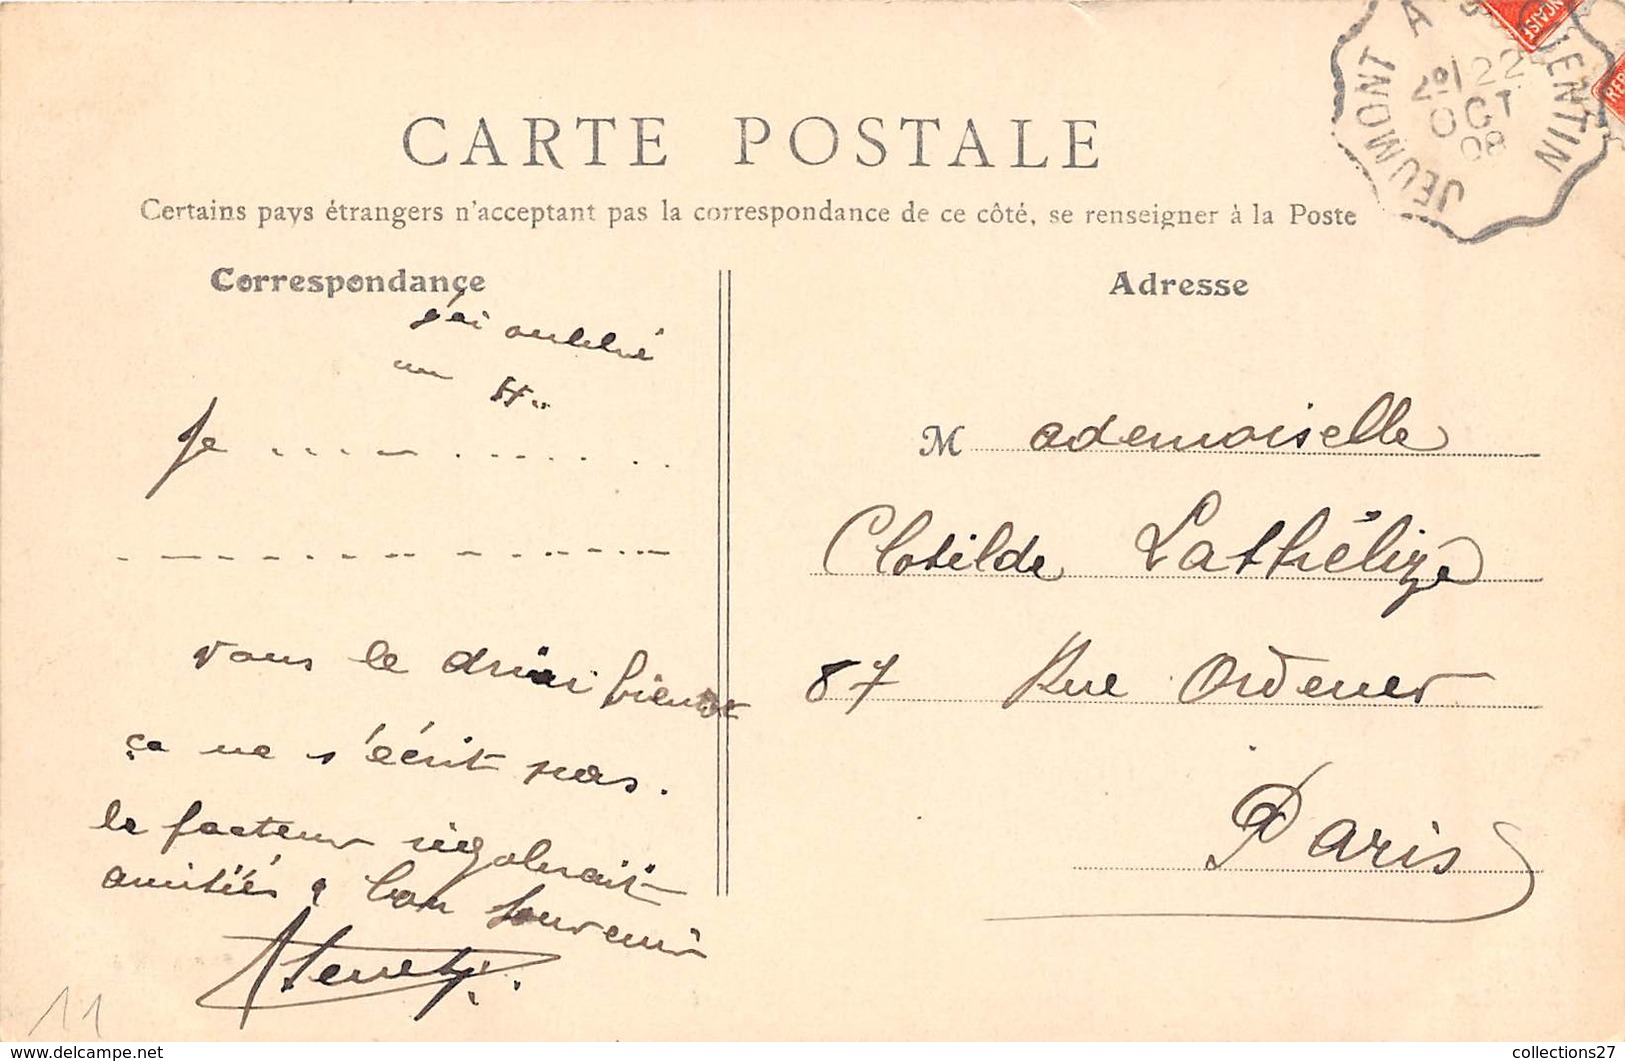 CARTE POSTALE
Certains pays étrangers n'acceptent pas la correspondance de ce côté, se renseigner à la Poste
Correspondance
j'ai oublié
un H..
Je
vous le dirai bientot
ça ne s'écrit pas.
le facteur rigolerait
amitiés & bon souvenir
Adresse
M ademoiselle
Clotilde Lathélize
87 Rue Ordener
Paris
JEUMONT A QUENTIN
22
OCT
08
11
collections27